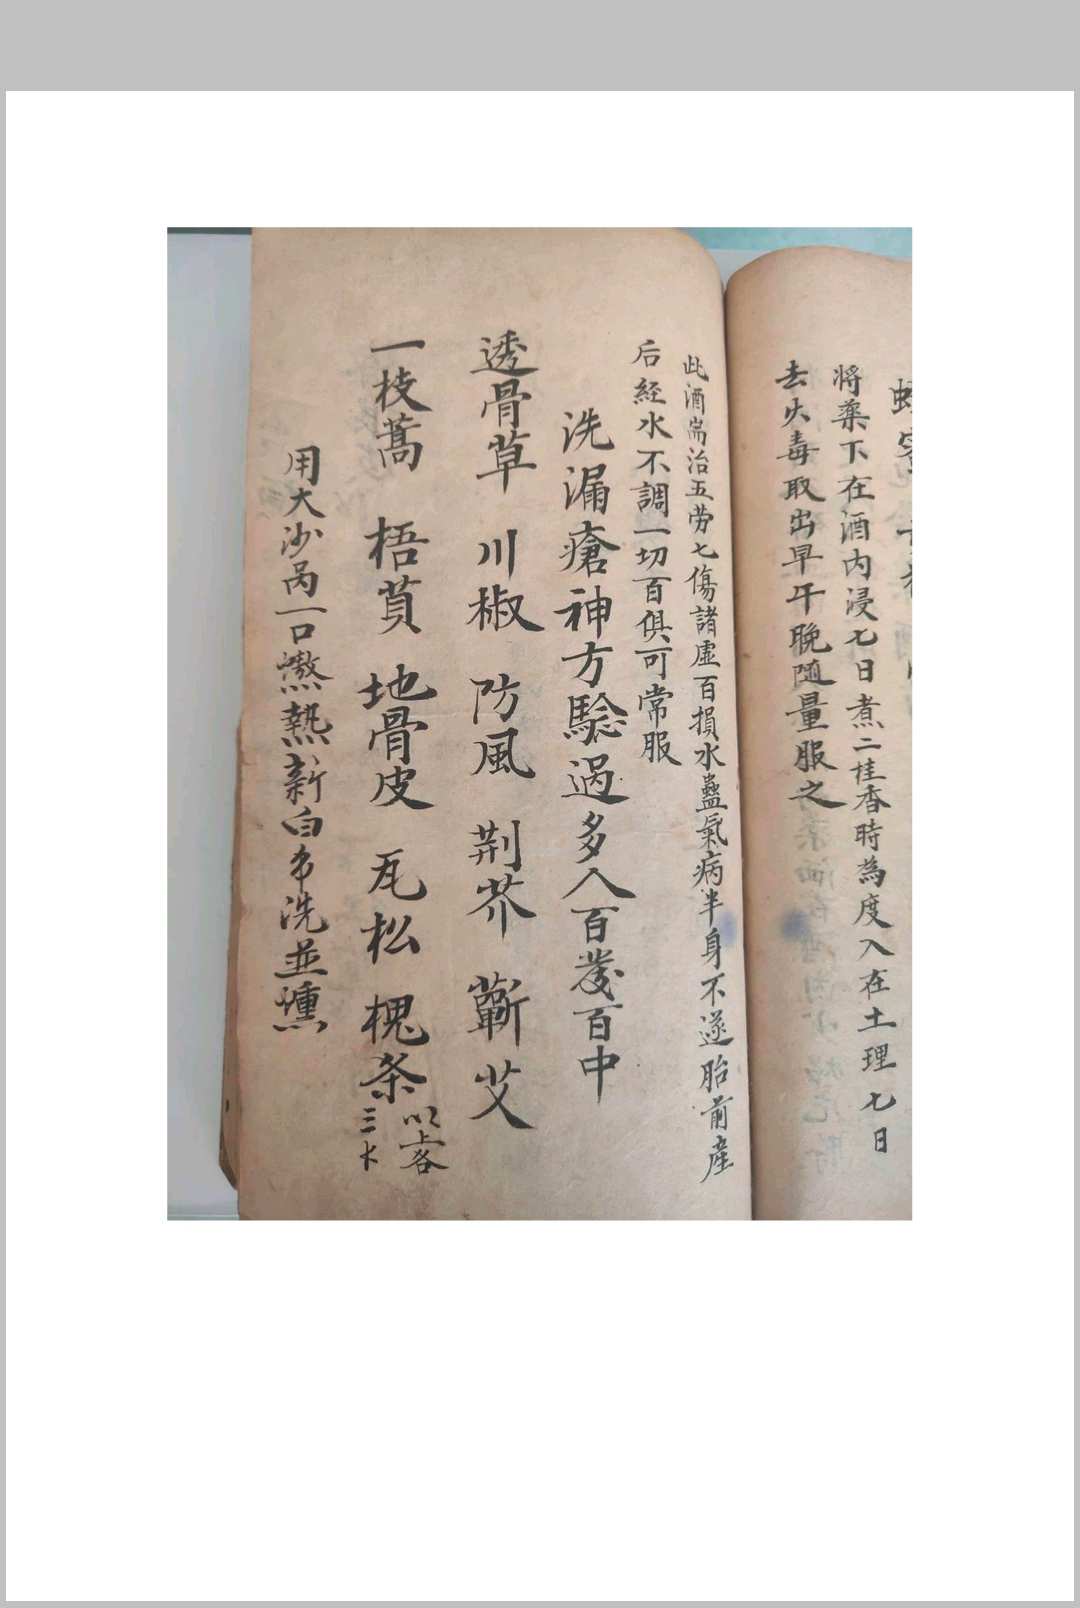 將藥下在酒內浸七日煮二桂香時為度入在土理七日
去火毒取出早午晚随量服之
此酒耑治五劳七傷諸虛百損水蠱氣病半身不遂胎前產
后經水不調一切百俱可常服
洗漏瘡神方騐過多人百發百中
透骨草 川椒 防風 荆芥 蘄艾
一枝蒿 梧莨 地骨皮 瓦松 槐条 以上各三木
用大沙鍋一口熬熱新白布洗並燻